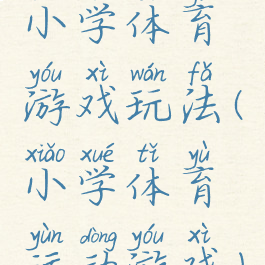 小学体育
yóu xì wán fǎ
游戏玩法(
xiǎo xué tǐ yù
小学体育
yùn dòng yóu xì
运动游戏)